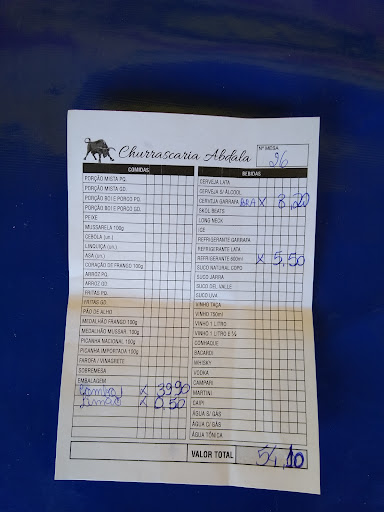 Churrascaria Abdala
Nº MESA
26
COMIDAS
PORÇÃO MISTA PQ.
PORÇÃO MISTA GD.
PORÇÃO BOI E PORCO PQ.
PORÇÃO BOI E PORCO GD.
PEIXE
MUSSARELA 100g
CEBOLA (un.)
LINGUIÇA (un.)
ASA (un.)
CORAÇÃO DE FRANGO 100g
ARROZ PQ.
ARROZ GD.
FRITAS PQ.
FRITAS GD.
PÃO DE ALHO
MEDALHÃO FRANGO 100g
MEDALHÃO MUSSAR. 100g
PICANHA NACIONAL 100g
PICANHA IMPORTADA 100g
FAROFA / VINAGRETE
SOBREMESA
EMBALAGEM
X 39,90
Limão X 0,50
BEBIDAS
CERVEJA LATA
CERVEJA S/ ÁLCOOL
CERVEJA GARRAFA BRA X 8,20
SKOL BEATS
LONG NECK
ICE
REFRIGERANTE GARRAFA
REFRIGERANTE LATA
REFRIGERANTE 600ml X 5,50
SUCO NATURAL COPO
SUCO JARRA
SUCO DEL VALLE
SUCO UVA
VINHO TAÇA
VINHO 750ml
VINHO 1 LITRO
VINHO 1 LITRO E ½
CONHAQUE
BACARDI
WHISKY
VODKA
CAMPARI
MARTINI
CAIPI
ÁGUA S/ GÁS
ÁGUA C/ GÁS
ÁGUA TÔNICA
VALOR TOTAL 54,10